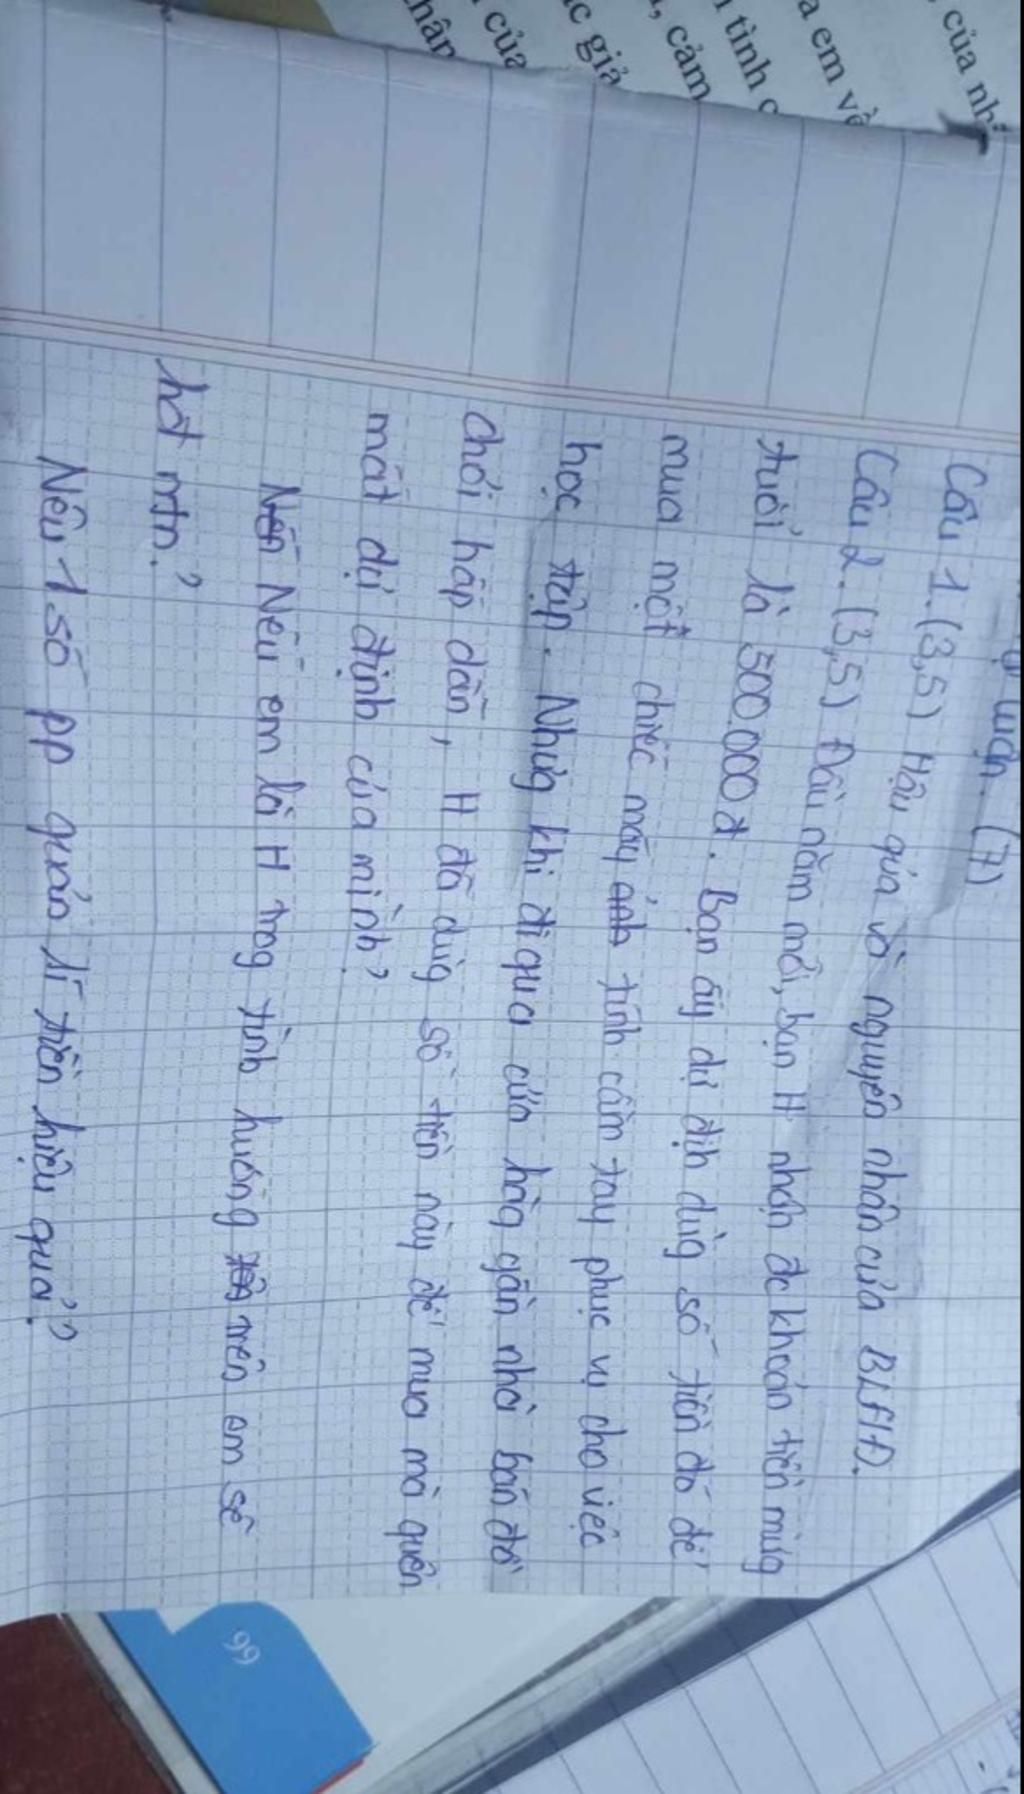 của nh
a em về
tình c
, cảm
ác giả
của
hân
luận. (7)
Câu 1. (3,5) Hậu quả và nguyên nhân của BLHĐ.
Câu 2. (3,5) Đầu năm mới, bạn H nhận đc khoản tiền mừg
tuổi là 500.000đ. Bạn ấy dự địh dùg số tiền đó để
mua một chiếc máy ảnh tính cầm tay phục vụ cho việc
học tập. Nhưg khi đi qua cửa hàg gần nhà bán đồ
chơi hấp dẫn, H đã dùg số tiền này để mua mà quên
mất dự định của mình?
Nếu em là H trog tình huống trên em sẽ
hđ ntn?
Nêu 1 số pp quản lí tiền hiệu quả?
99